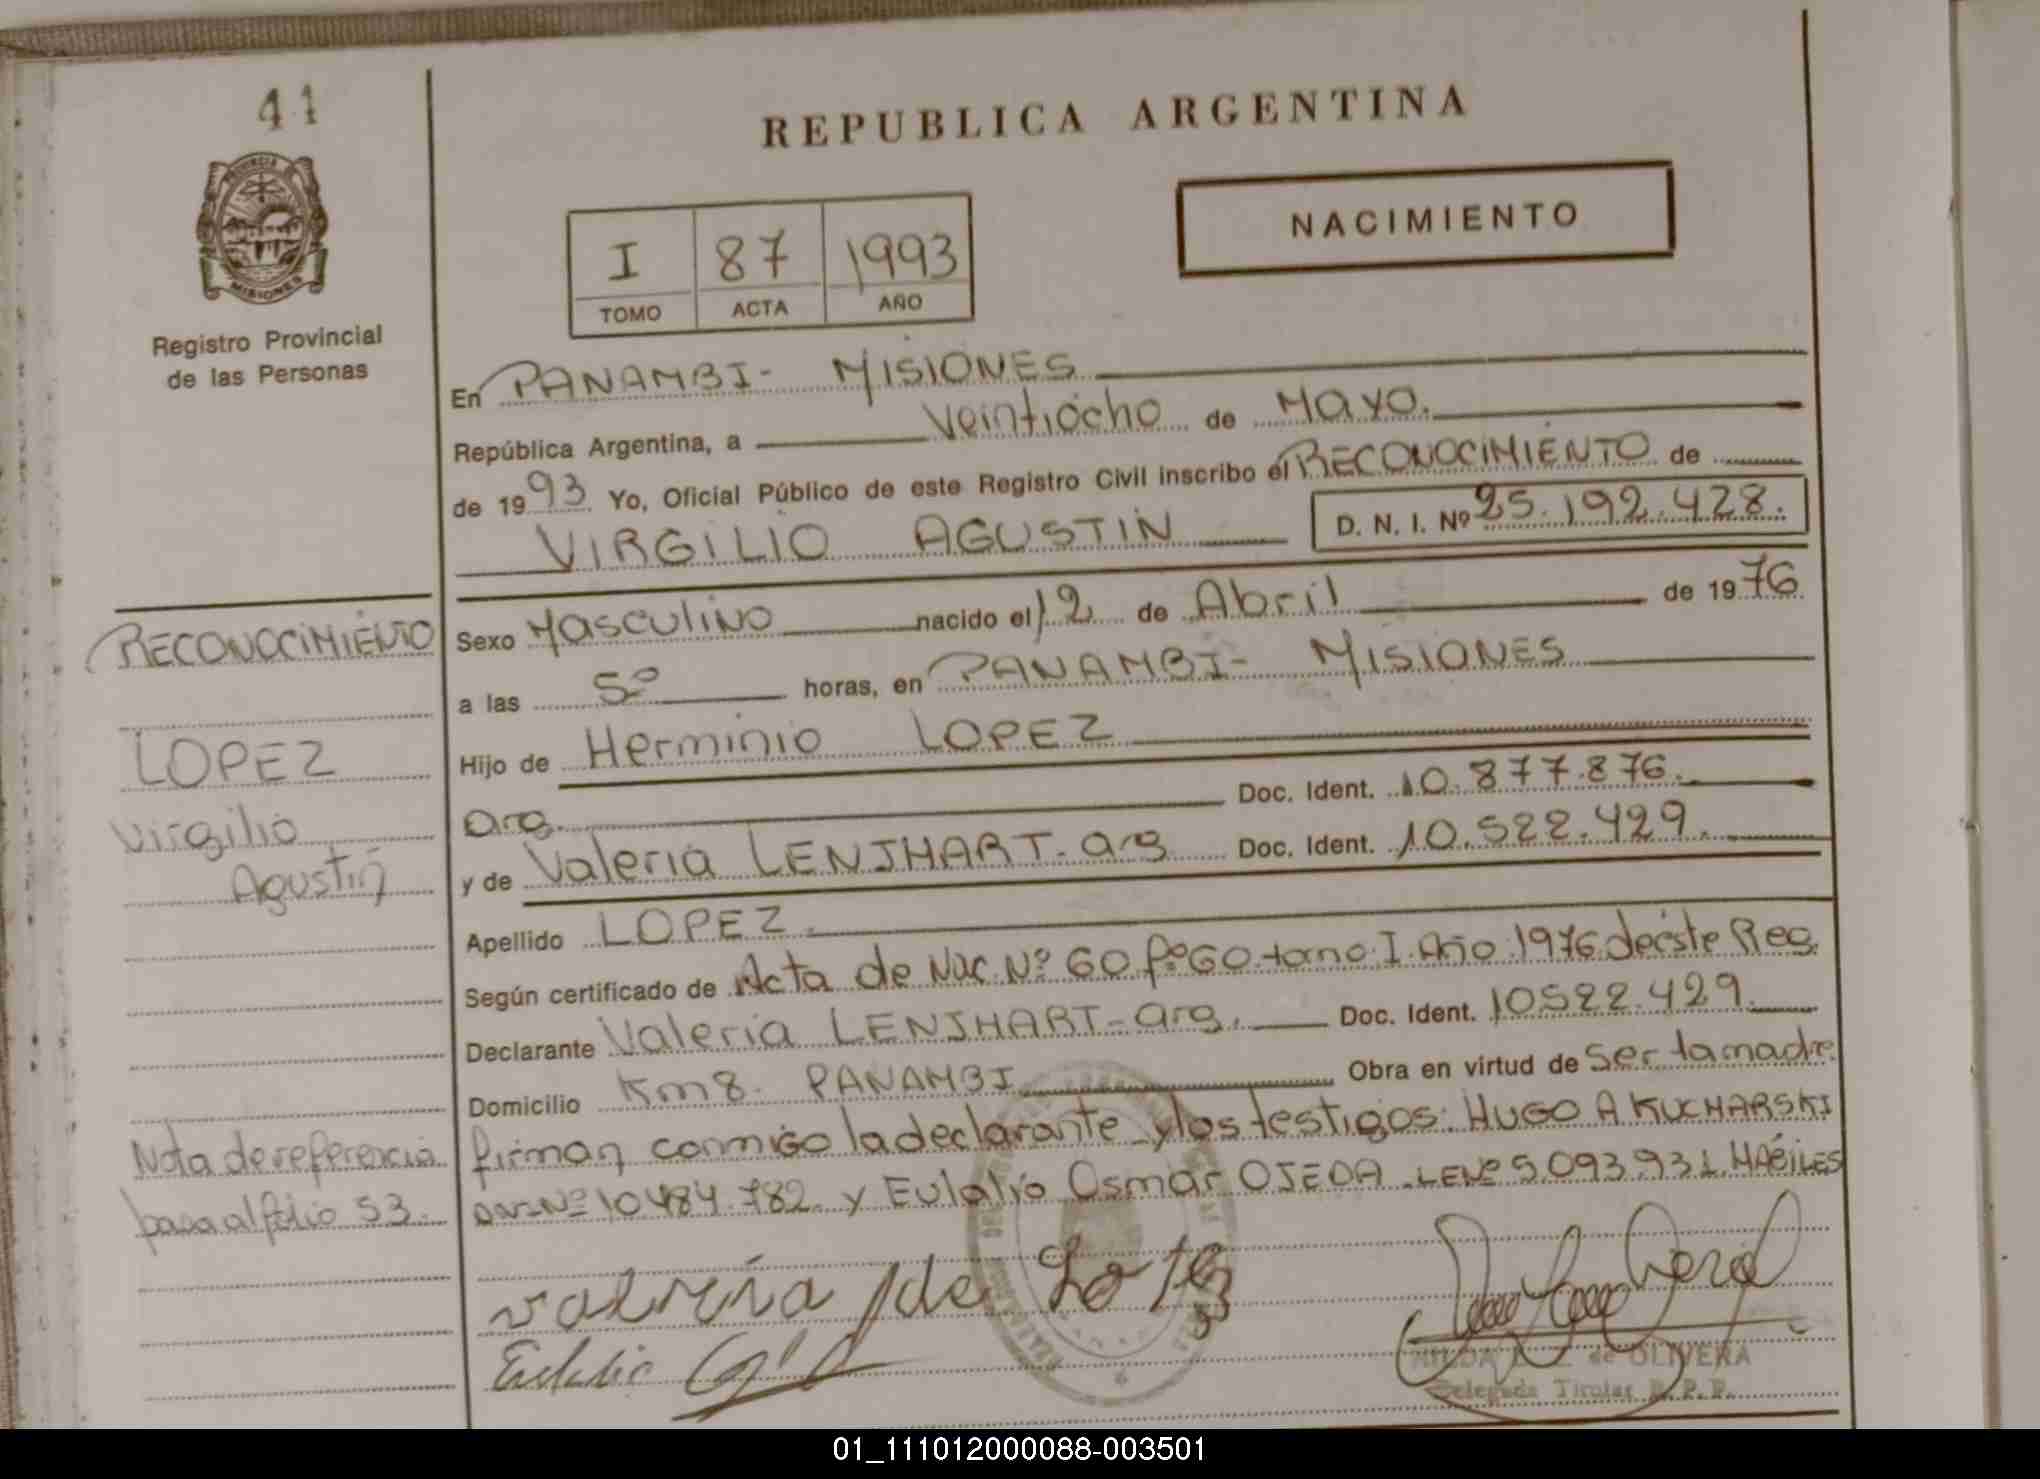 41
REPUBLICA ARGENTINA
PROVINCIA
MISIONES
NACIMIENTO
I 87 1993
TOMO ACTA AÑO
Registro Provincial
de las Personas
En PANAMBI- MISIONES
República Argentina, a Veintiocho de Mayo.
de 1993 Yo, Oficial Público de este Registro Civil inscribo el RECONOCIMIENTO de
VIRGILIO AGUSTIN D. N. I. Nº 25.192.428.
RECONOCIMIENTO
LOPEZ
Virgilio
Agustin
Sexo Masculino nacido el 12 de Abril de 1976
a las 5º horas, en PANAMBI- MISIONES
Hijo de Herminio LOPEZ
arg. Doc. Ident. 10.877.876.
y de Valeria LENJHART- arg Doc. Ident. 10.522.429.
Apellido LOPEZ.
Según certificado de Acta de Nac. Nº 60 Fº 60 tomo I. Año 1976 de éste Reg.
Declarante Valeria LENJHART- arg. Doc. Ident. 10522.429.
Domicilio Km 8. PANAMBI Obra en virtud de Ser la madre
firman conmigo la declarante y los testigos: HUGO A KUCHARSKI
DNI Nº 10484.782. y Eulalio Osmar OJEDA. LE Nº 5.093.931. HABILES
Nota de referencia
pasa al folio 53.
de OLIVERA
Delegada Titular R. P. P.
01_111012000088-003501